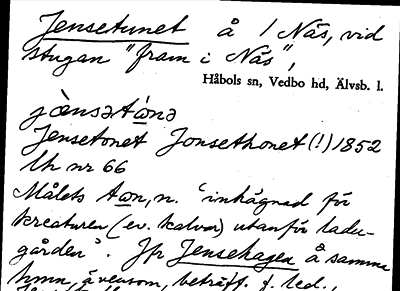 Jensetunet å 1 Näs, vid
stugan "fram i Näs",
Håbols sn, Vedbo hd, Älvsb. l.
jὰnsətώnə
Jensetonet Jonsethonet (!) 1852
Lh nr 66
Målets tωn, n. 'inhägnad för
kreaturen (ev. kalvar) utanför ladu-
gården'. Jfr Jensehagen å samma
hmn, ävensom, beträff. f. led.,